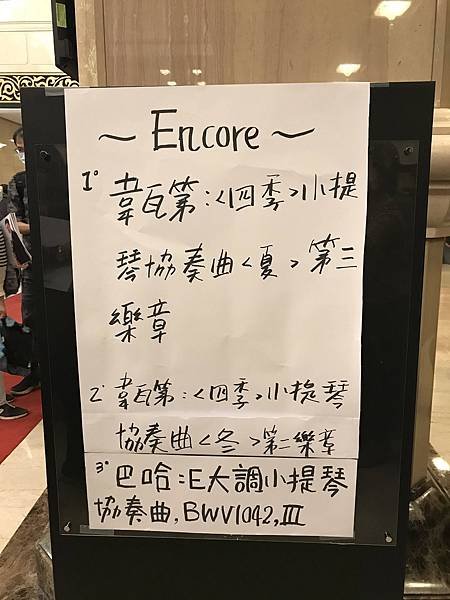 ～ Encore ～
1° 韋瓦第:<四季>小提
琴協奏曲<夏>第三
樂章
2° 韋瓦第:<四季>小提琴
協奏曲<冬>第二樂章
3° 巴哈:E大調小提琴
協奏曲,BWV1042,III